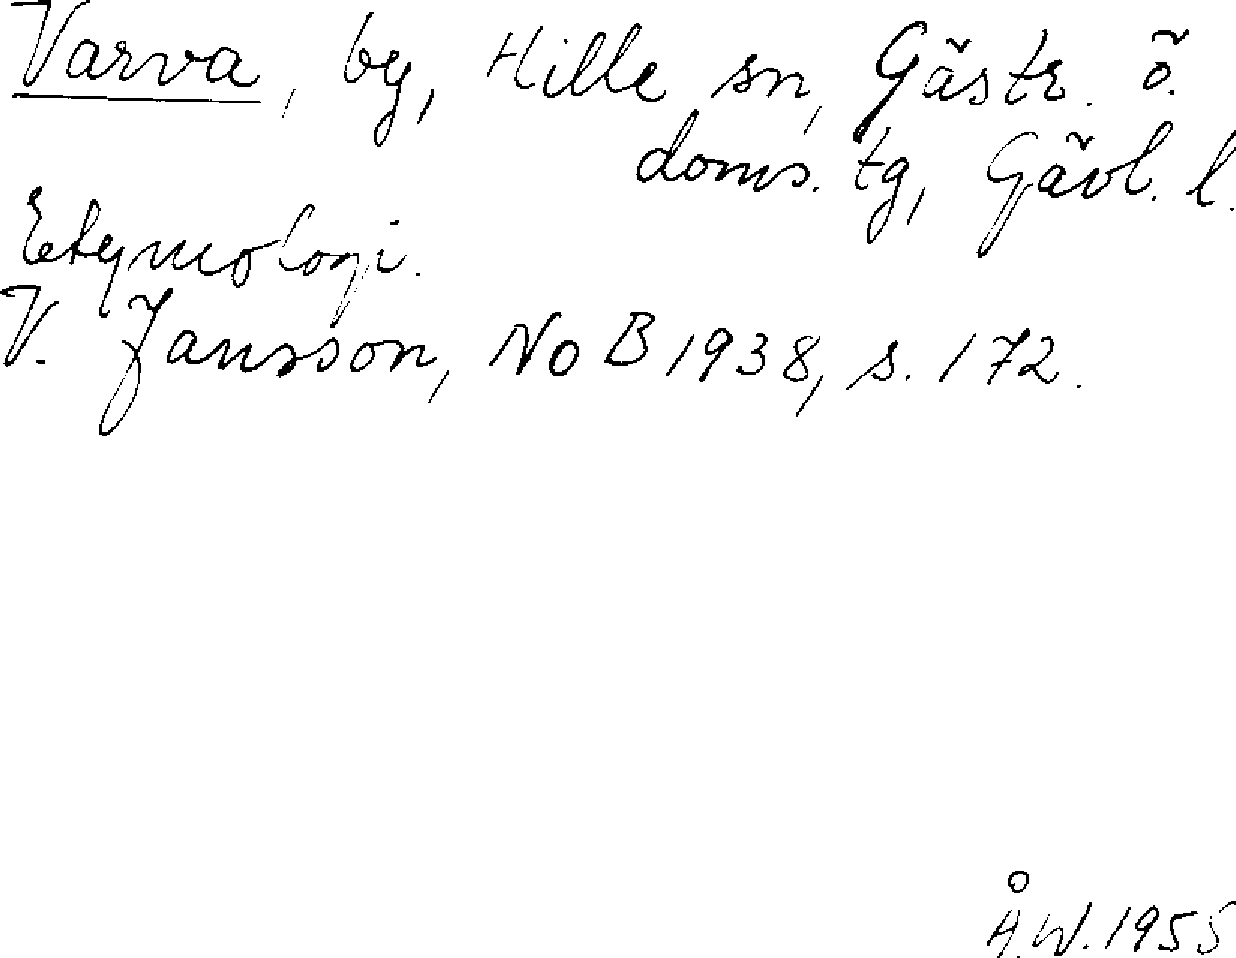 Varva, by, Hille sn, Gästr. ö.
doms. tg, Gävl. l.
Etymologi.
V. Jansson, NoB 1938, s. 172.
Å.W. 1955